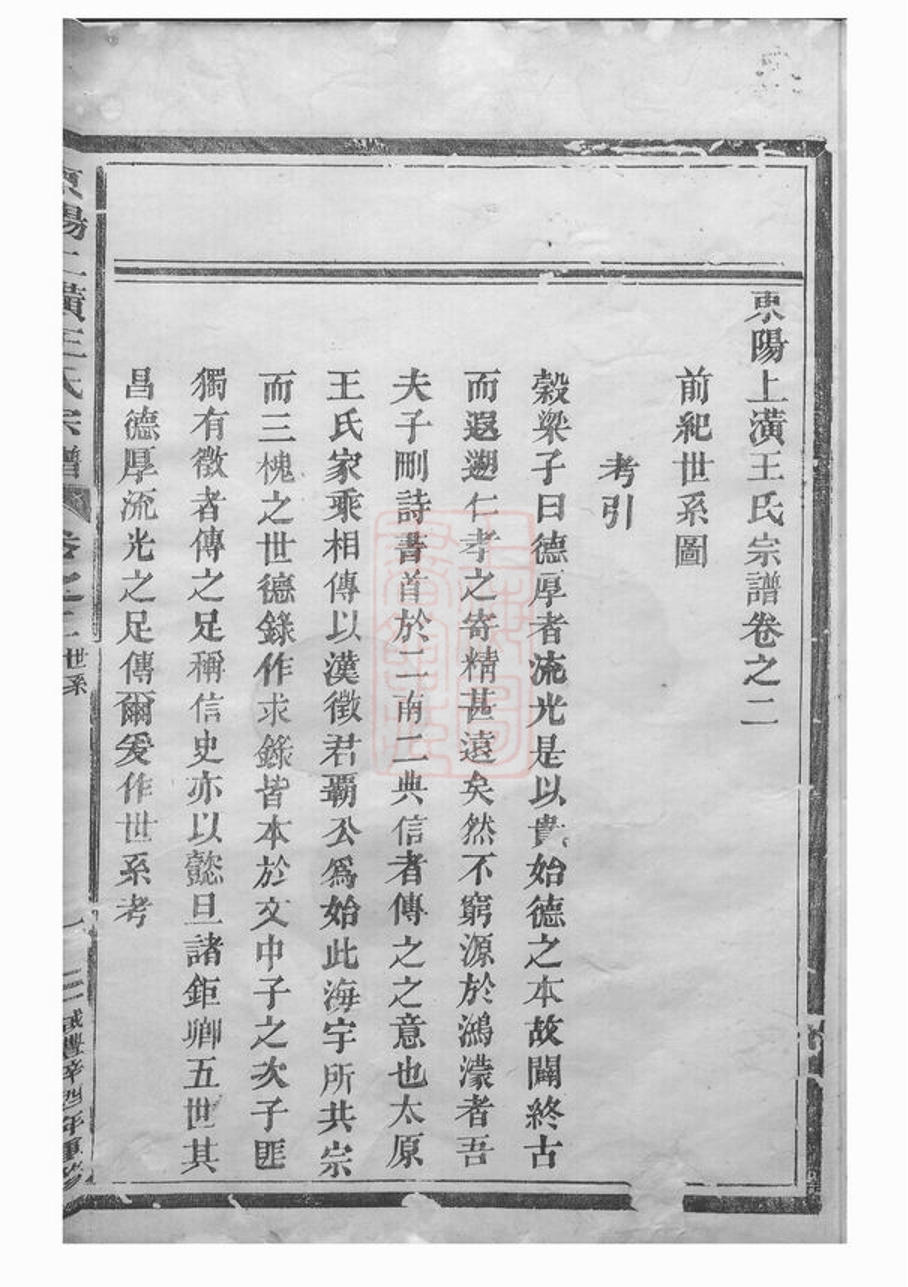 東陽上潢王氏宗譜卷之二
前紀世系圖
考引
穀梁子曰德厚者流光是以貴始德之本故闡終古
而遐遡仁孝之寄精甚遠矣然不窮源於鴻濛者吾
夫子刪詩書首於二南二典信者傳之之意也太原
王氏家乘相傳以漢徵君霸公爲始此海宇所共宗
而三槐之世德錄作求錄皆本於文中子之次子匪
獨有徵者傳之足稱信史亦以懿旦諸鉅卿五世其
昌德厚流光之足傳爾爰作世系考
東陽上潢王氏宗譜 卷之二 世系 一 咸豐辛酉年重修